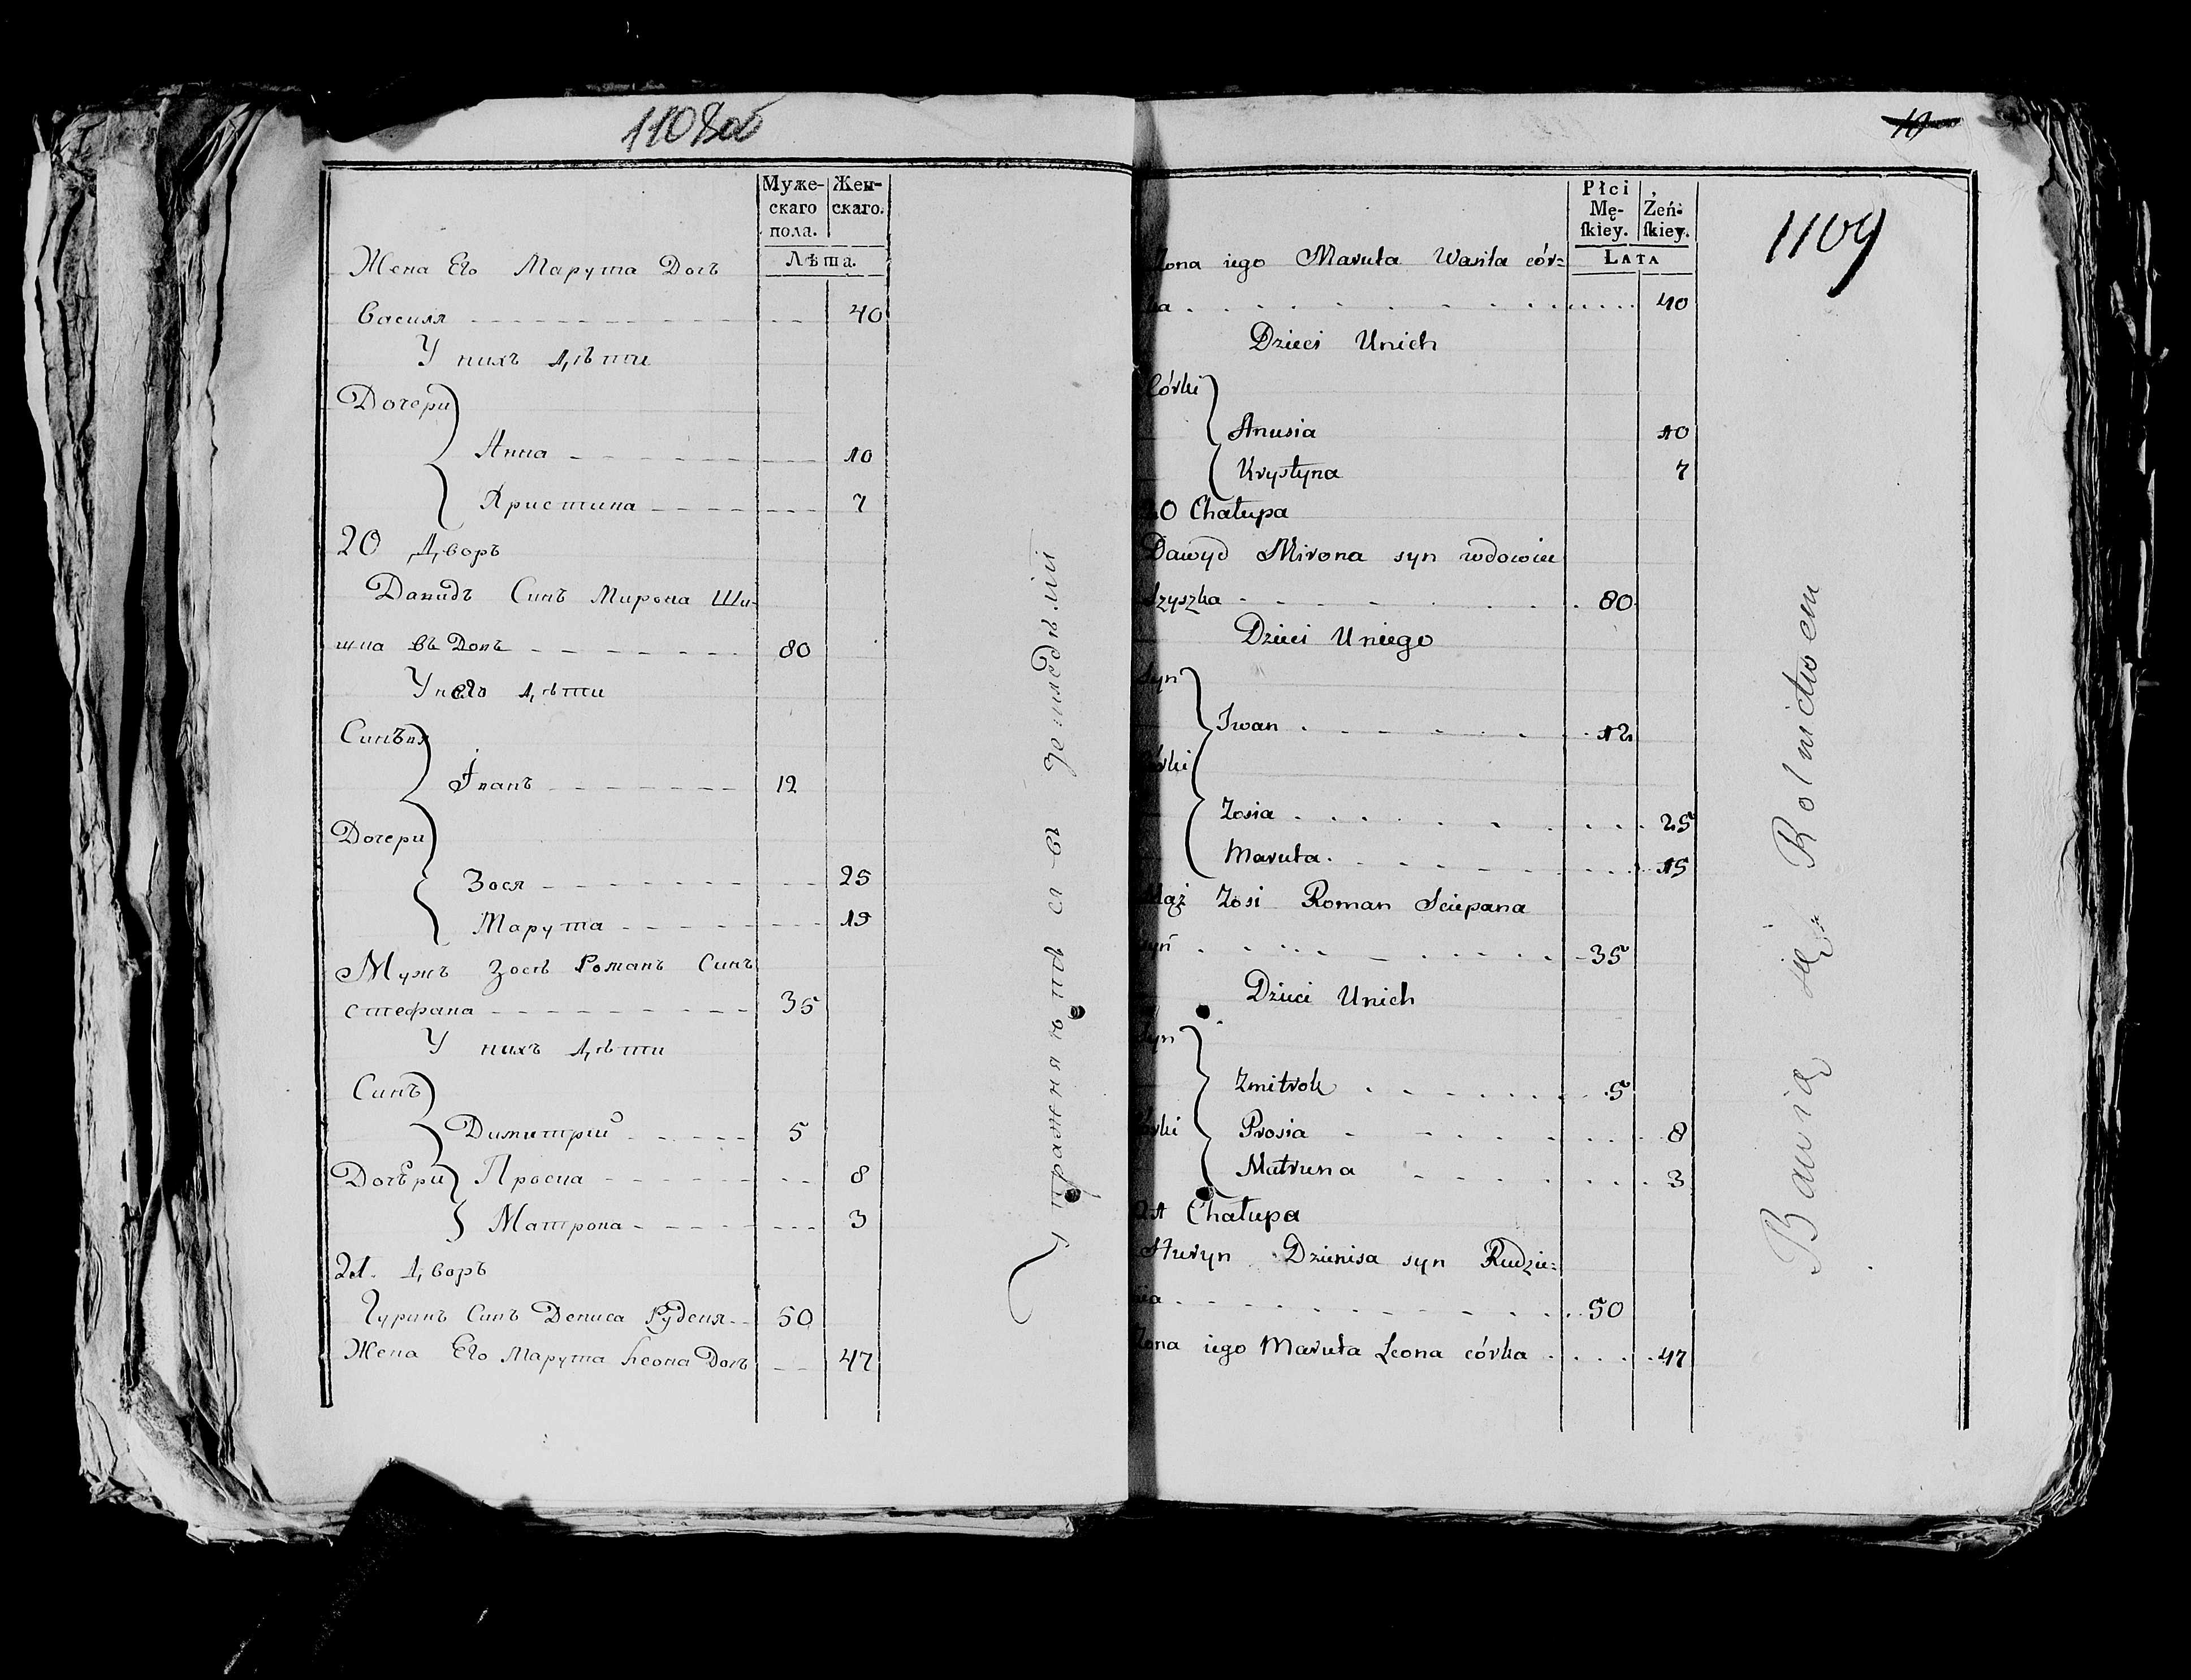 1108об
Муже-
скаго
пола.
Жен-
скаго.
Лѣта.
Жена Его Марута Дочь
Василя 40
У нихъ дѣти
Дочери
Анна 10
Христина 7
20 Дворъ
Давидъ Синъ Мирона Ши-
шка въ Довъ 80
У него дѣти
Синъ
Іванъ 12
Дочери
Зося 25
Марута 15
Мужъ Зосѣ Романъ Синъ
стефана 35
У нихъ дѣти
Синъ
Димитрій 5
Дочери Просиа 8
Матрона 3
21. Дворъ
Гуринъ Синъ Дениса Руденя 50
Жена Его Марута Леона Дочь 47
земледѣлій
11
1109
Płci
Mę-
ſkiey.
Żeń-
ſkiey.
LATA
Żona iego Maruta Wasila cór=
ka 40
Dzieci Unich
Córki
Anusia 10
Krystyna 7
20 Chałupa
Dawyd Mirona syn wdowiec
Szyszka 80
Dzieci Uniego
Syn
Iwan 12
Córki
Zosia 25
Maruta 15
Mąż Zosi Roman Sciepana
syn 35
Dzieci Unich
Syn
Zmitrok 5
Córki Prosia 8
Matruna 3
21 Chałupa
Huryn Dzienisa syn Rudzie=
nia 50
Żona iego Maruta Leona córka 47
Bawią się Rolnictwem